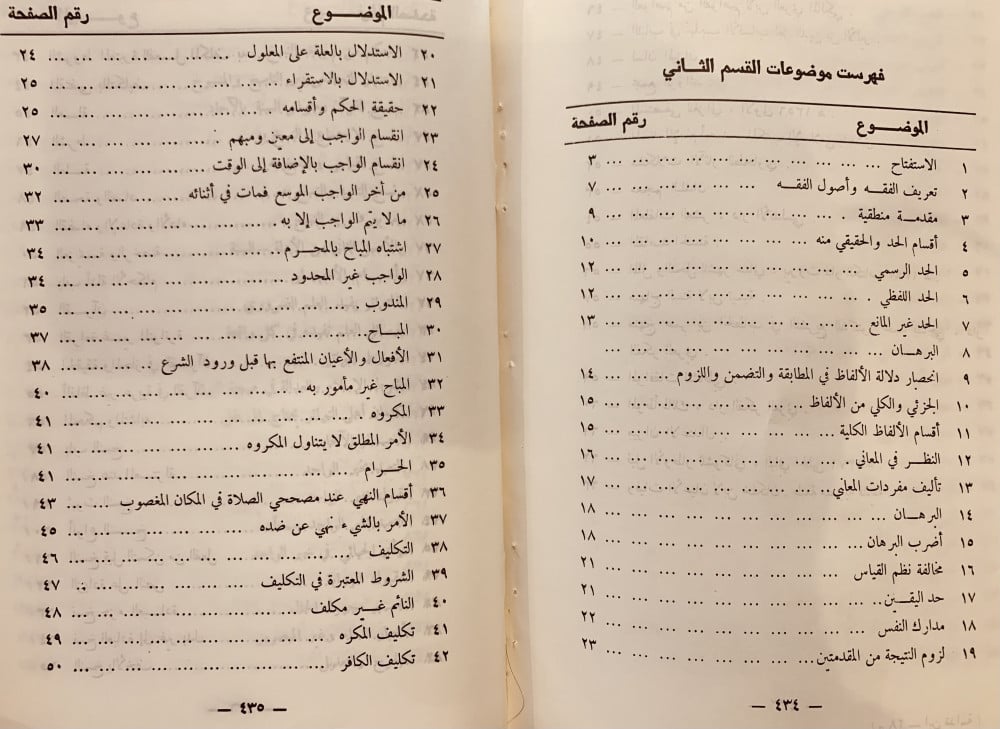 فهرست موضوعات القسم الثاني
الموضوع رقم الصفحة
١ الاستفتاح ... ٣
٢ تعريف الفقه وأصول الفقه ... ٧
٣ مقدمة منطقية ... ٩
٤ أقسام الحد والحقيقي منه ... ١٠
٥ الحد الرسمي ... ١٢
٦ الحد اللفظي ... ١٢
٧ الحد غير المانع ... ١٣
٨ البرهان ...
٩ انحصار دلالة الألفاظ في المطابقة والتضمن واللزوم ... ١٤
١٠ الجزئي والكلي من الألفاظ ... ١٥
١١ أقسام الألفاظ الكلية ... ١٥
١٢ النظر في المعاني ... ١٦
١٣ تأليف مفردات المعاني ... ١٧
١٤ البرهان ... ١٨
١٥ أضرب البرهان ... ١٨
١٦ مخالفة نظم القياس ... ٢١
١٧ حد اليقين ... ٢١
١٨ مدارك النفس ... ٢٢
١٩ لزوم النتيجة من المقدمتين ... ٢٣
— ٤٣٤ —
الموضوع رقم الصفحة
٢٠ الاستدلال بالعلة على المعلول ... ٢٤
٢١ الاستدلال بالاستقراء ... ٢٥
٢٢ حقيقة الحكم وأقسامه ... ٢٥
٢٣ انقسام الواجب إلى معين ومبهم ... ٢٧
٢٤ انقسام الواجب بالإضافة إلى الوقت ... ٣٠
٢٥ من أخر الواجب الموسع فمات في أثنائه ... ٣٢
٢٦ ما لا يتم الواجب إلا به ... ٣٣
٢٧ اشتباه المباح بالمحرم ... ٣٤
٢٨ الواجب غير المحدود ... ٣٤
٢٩ المندوب ... ٣٥
٣٠ المباح ... ٣٧
٣١ الأفعال والأعيان المنتفع بها قبل ورود الشرع ... ٣٨
٣٢ المباح غير مأمور به ... ٤٠
٣٣ المكروه ... ٤١
٣٤ الأمر المطلق لا يتناول المكروه ... ٤١
٣٥ الحرام ... ٤١
٣٦ أقسام النهي عند مصححي الصلاة في المكان المغصوب ... ٤٣
٣٧ الأمر بالشيء نهي عن ضده ... ٤٥
٣٨ التكليف ... ٤٦
٣٩ الشروط المعتبرة في التكليف ... ٤٧
٤٠ النائم غير مكلف ... ٤٨
٤١ تكليف المكره ... ٤٩
٤٢ تكليف الكافر ... ٥٠
— ٤٣٥ —